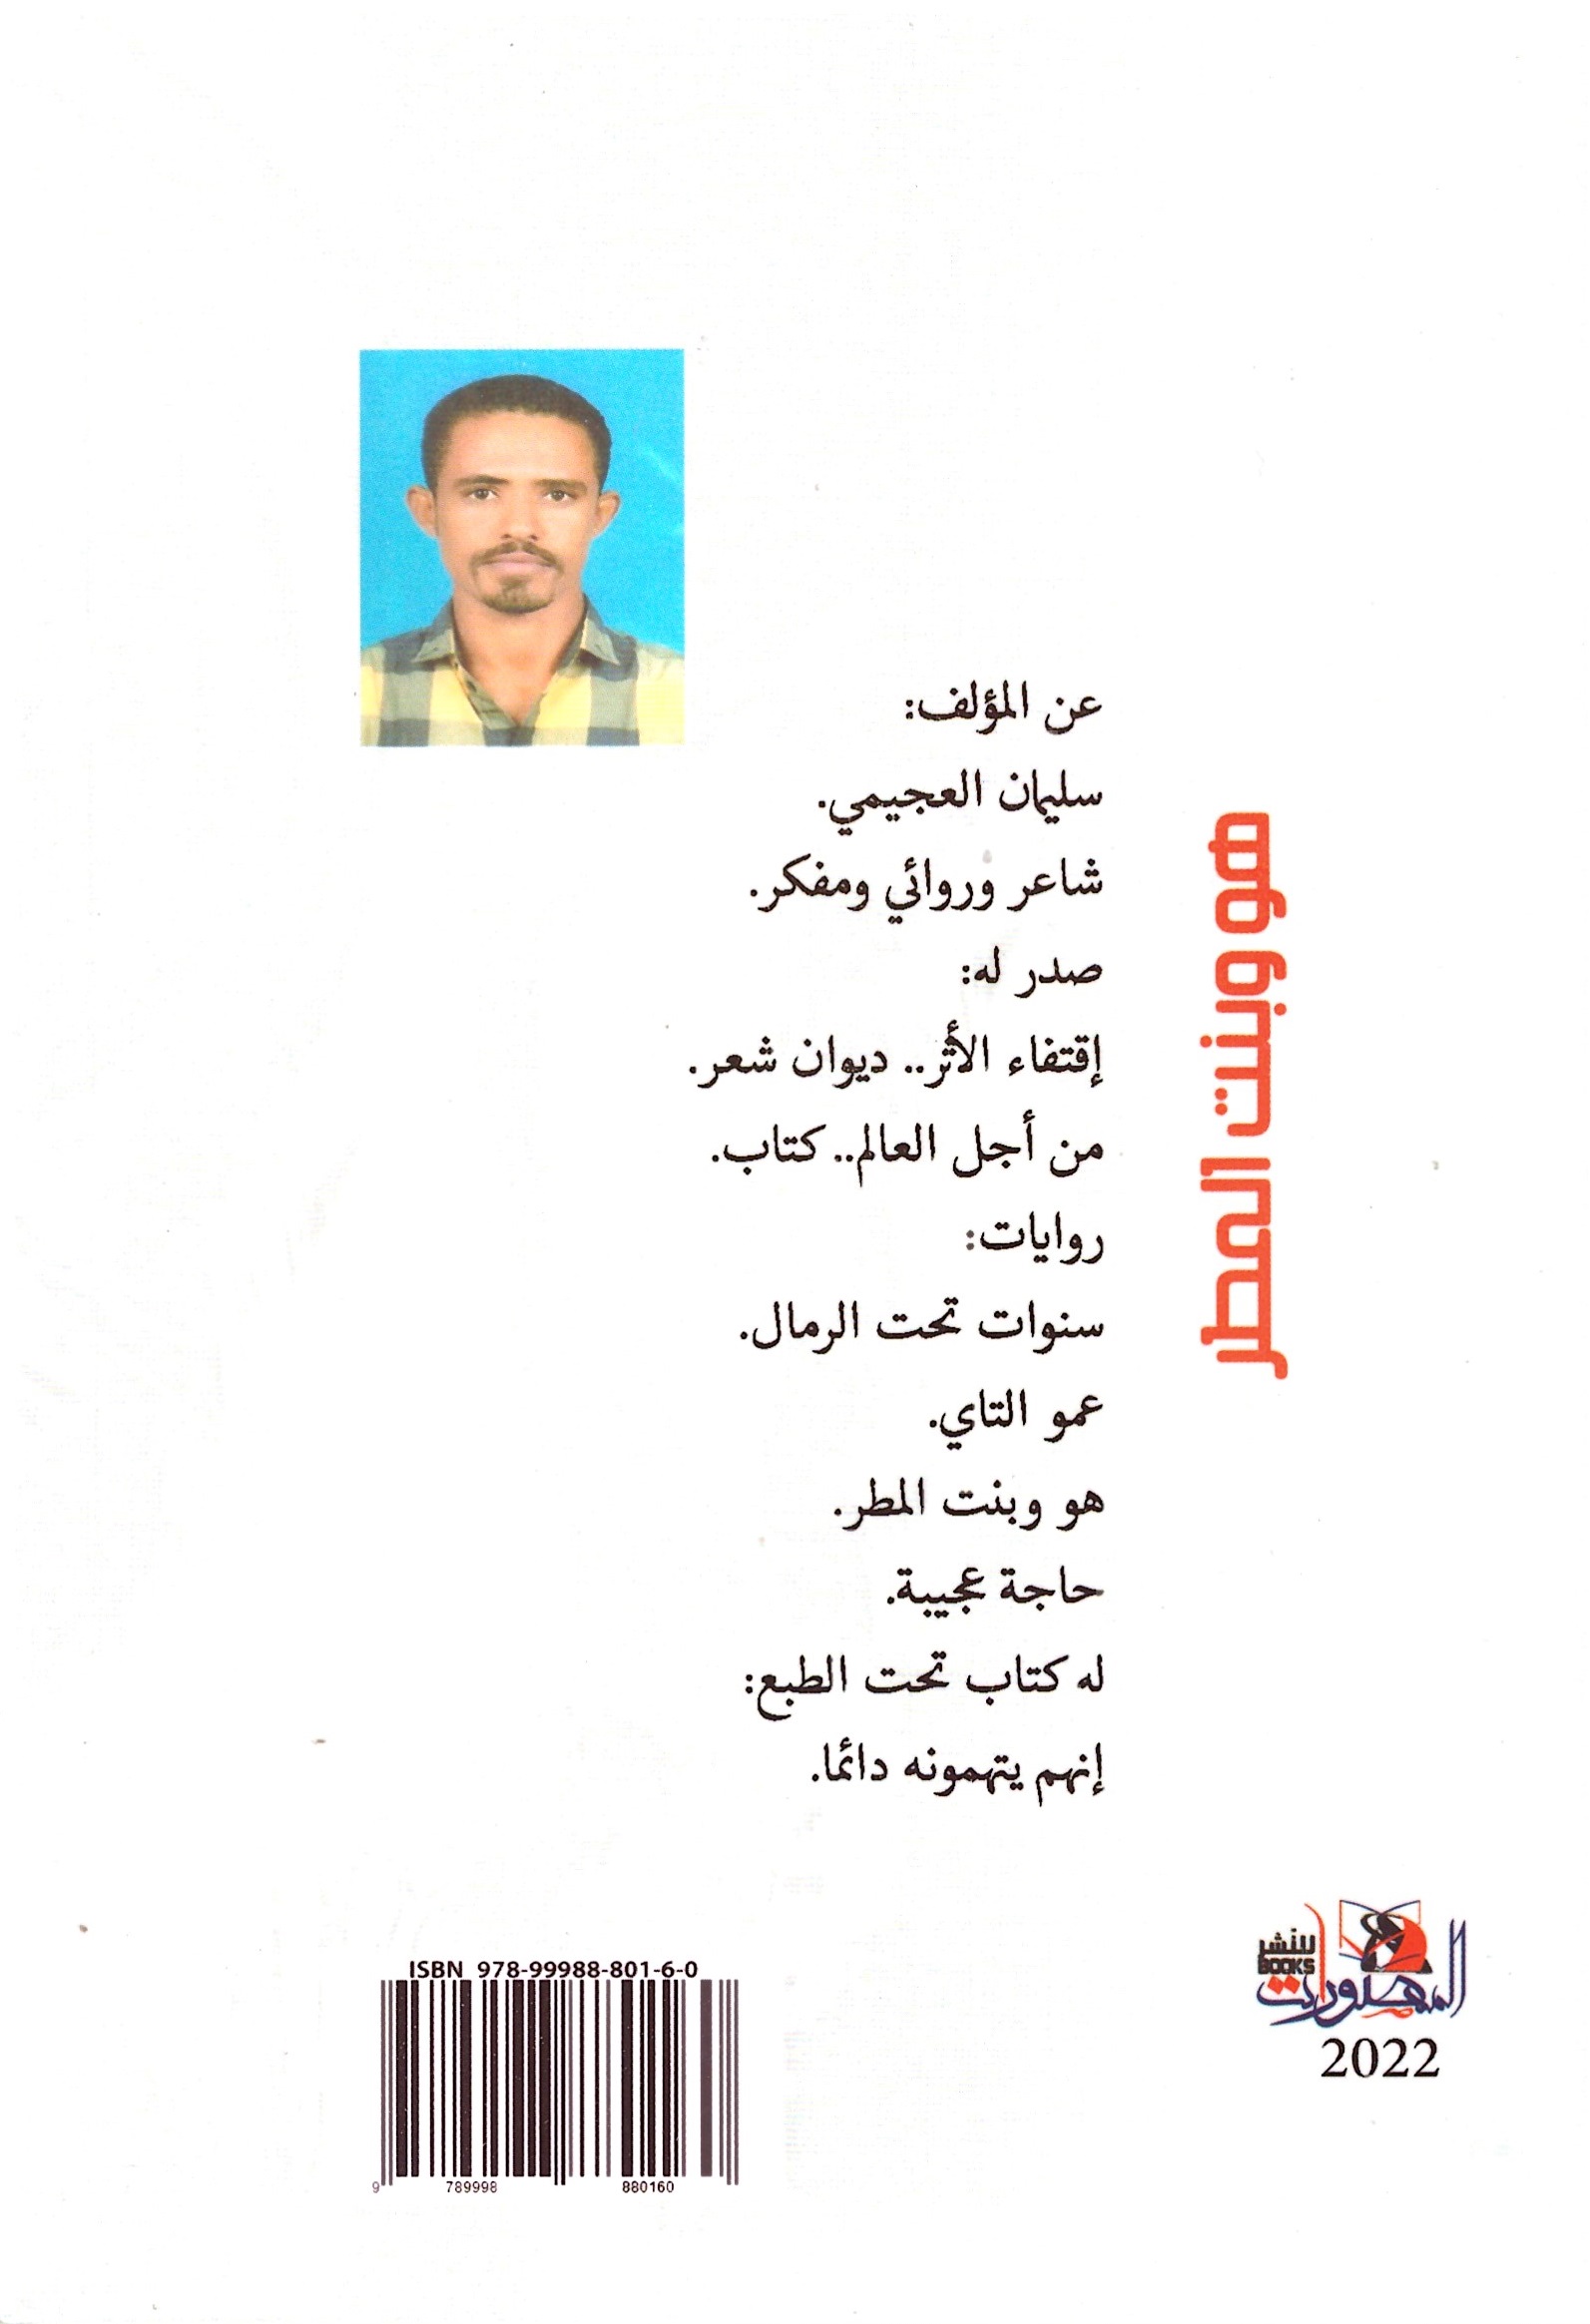 عن المؤلف:
سليمان العجيمي.
شاعر وروائي ومفكر.
صدر له:
إقتفاء الأثر.. ديوان شعر.
من أجل العالم.. كتاب.
روايات:
سنوات تحت الرمال.
عمو التاي.
هو وبنت المطر.
حاجة عجيبة.
له كتاب تحت الطبع:
إنهم يتهمونه دائما.
هو وبنت المطر
للنشر
BOOKS
2022
ISBN 978-99988-801-6-0
9 789998 880160